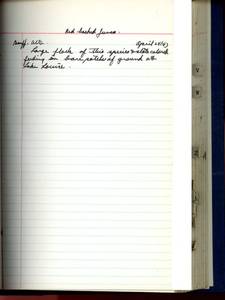 Red backed Junco.
Banff. Alta. April 28/43
Large flock of this species & slate colored
feeding on bare patches of ground at
Lake Louise.
V